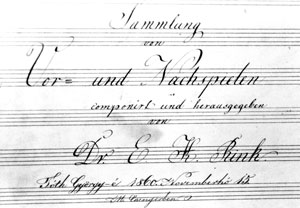 Sammlung
von
Vor= und Nachspielen
componirt und herausgegeben
von
Dr. E H. Rink
Tóth György é 1860. Novemberhó 15.